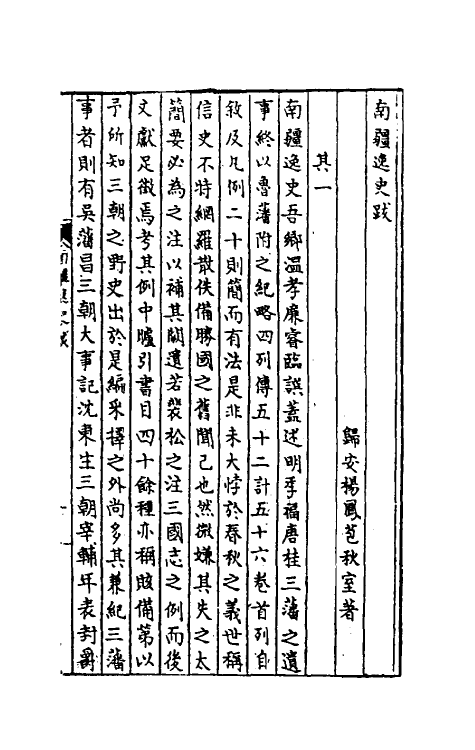 南疆逸史跋
歸安楊鳳苞秋室著
其一
南疆逸史吾鄉溫孝廉睿臨譔蓋述明季福唐桂三藩之遺
事終以魯藩附之紀略四列傳五十二計五十六卷首列自
敘及凡例二十則簡而有法是非未大悖於春秋之義世稱
信史不特網羅散佚備勝國之舊聞已也然微嫌其失之太
簡要必為之注以補其闕遺若裴松之注三國志之例而後
文獻足徵焉考其例中臚引書目四十餘種亦稱賅備第以
予所知三朝之野史出於是編采擇之外尚多其兼紀三藩
事者則有吳藩昌三朝大事記沈東生三朝宰輔年表封爵